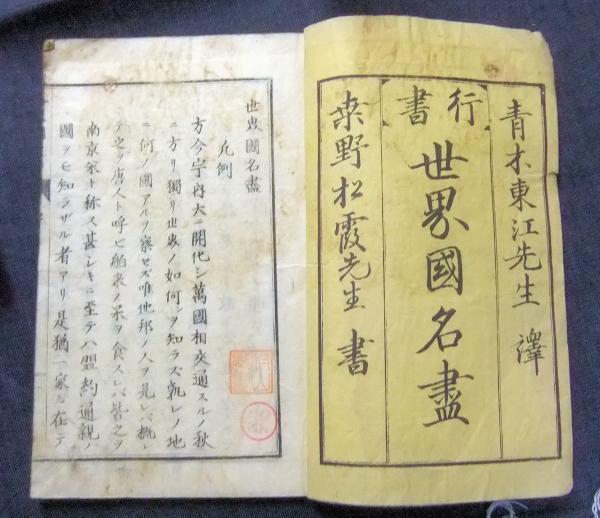 青木東江先生 譯
行書
世界國名盡
桒野松霞先生 書
世界國名盡
凡例
方今宇内大ニ開化シ萬國相交通スルノ秋
ニ方リ獨リ世界ノ如何ヲ知ラズ孰レノ地
ニ何ノ國アルヲ察セズ唯他邦ノ人ヲ見レバ概シ
テ之ヲ唐人ト呼ビ舶来ノ菜ヲ食スレバ皆之ヲ
南京菜ト称ス甚シキニ至テハ盟約通親ノ
國ヲモ知ラザル者アリ是猶一家ニ在テ